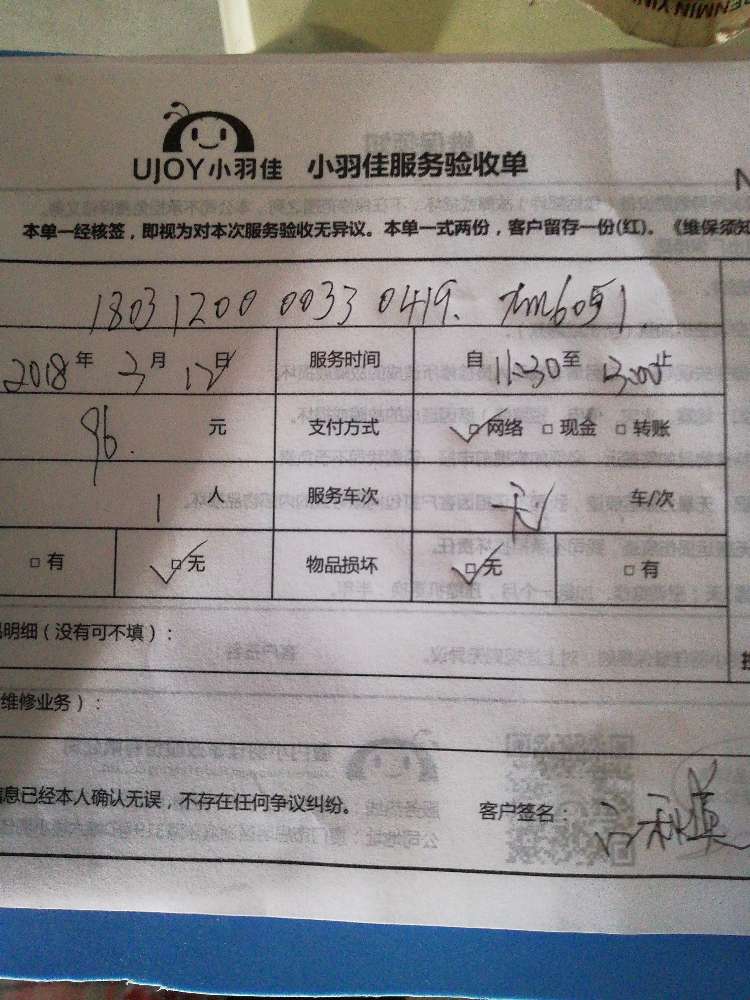 UJOY小羽佳 小羽佳服务验收单
本单一经核签，即视为对本次服务验收无异议。本单一式两份，客户留存一份(红)。《维保须知
180312000 00330419. xm6051
2018年 3月 12日 服务时间 自 11:30 至 13:00 止
96. 元 支付方式 ☑网络 □现金 □转账
1 人 服务车次 无 车/次
□有 ☑无 物品损坏 ☑无 □有
明细（没有可不填）：
维修业务）：
信息已经本人确认无误，不存在任何争议纠纷。 客户签名：